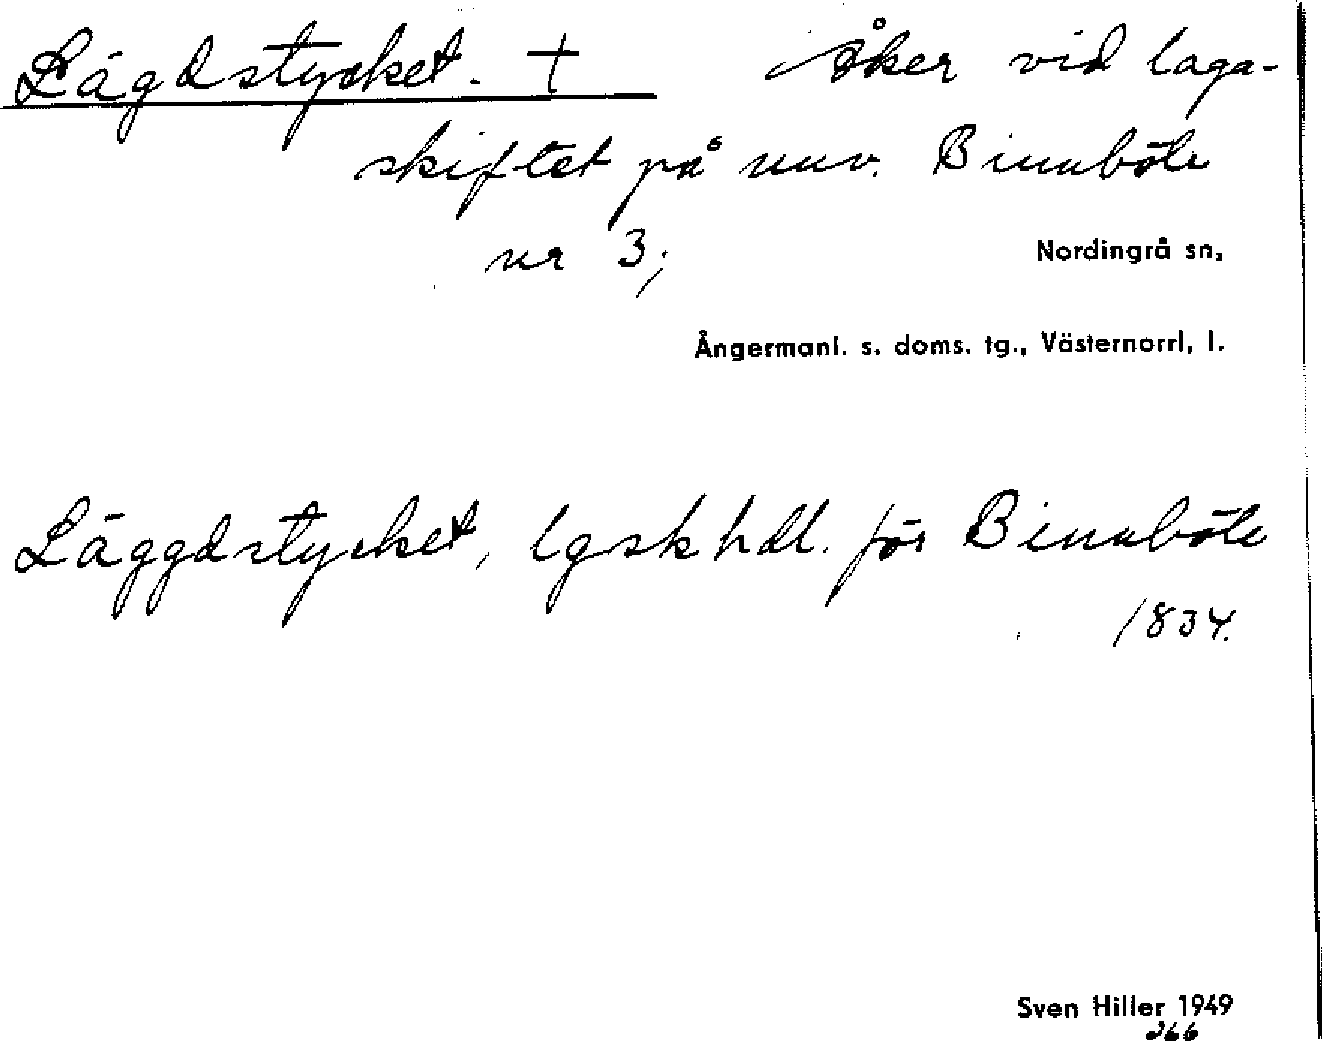 Lägdstycket. † åker vid laga-
skiftet på nuv. Binnböle
nr 3;
Nordingrå sn,
Ångermanl. s. doms. tg., Västernorrl, l.
Läggdstycket, lgsk hdl. för Binnböle
1834.
Sven Hiller 1949
266